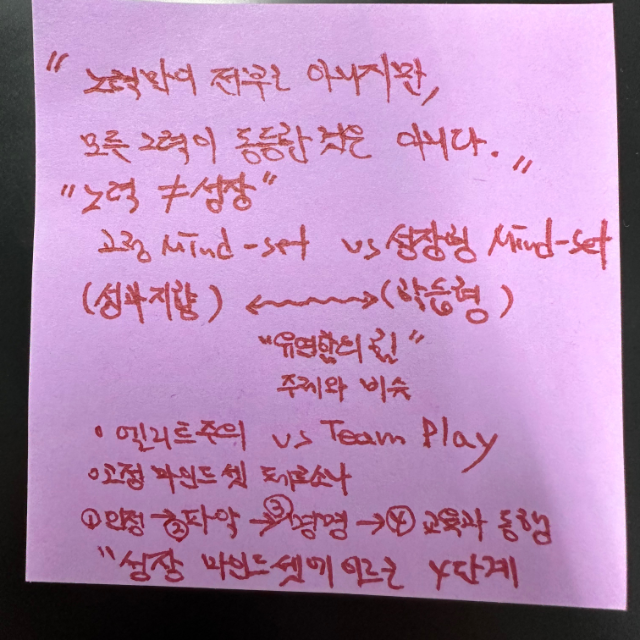 "노력만이 전부는 아니지만,
모든 노력이 동등한 것은 아니다."
"노력 ≠ 성장"
고정 Mind-set vs 성장형 Mind-set
(성과지향) ↔ (학습형)
"유명함의 길"
주제와 비슷
• 엘리트주의 vs Team Play
• 고정 마인드셋 페르소나
① 인정 → ② 파악 → ③ 명명 → ④ 교육과 동행
"성장 마인드셋에 이르는 4단계